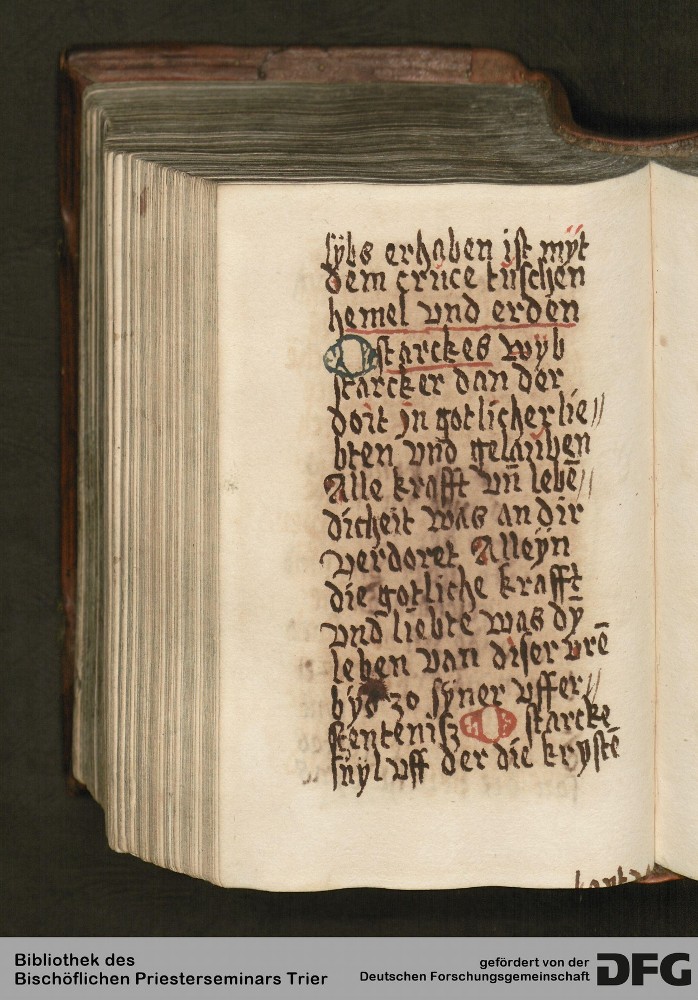 lÿbs erhaben ist mÿt
dem crúce túschen
hemel vnd erden
O starckes wÿb
starcker dan der
doit jn gotlicher lie//
bten vnd gelauben
Alle krafft vn̄ lebē//
dicheit was an dir
verdoret Alleÿn
die gotliche krafft
vnd liebte was dÿ
leben van diser vrē
býs zo sÿner vffer//
stentenisz O starcke
súÿl vff der die krystē
Bibliothek des
Bischöflichen Priesterseminars Trier
gefördert von der
Deutschen Forschungsgemeinschaft DFG